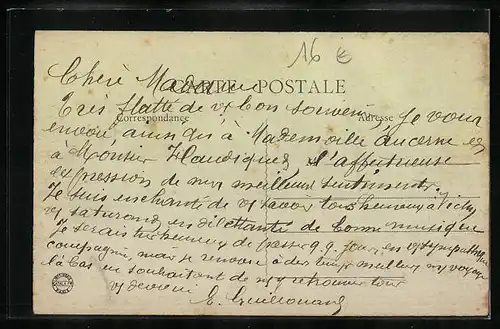 16 €
Chère Madame
CARTE POSTALE
Très flatté de v/ bon souvenir, Je vous
Correspondance
Adresse
envoie ainsi qu'à Mademoiselle et
à Monsieur l'affectueuse
expression de mes meilleurs sentiments.
Je suis enchanté de v/ savoir tous heureux à Vichy
v/ saturant en dilettante de bonne musique
Je serais très heureux de passer q.q. jours en v/ sympathique
compagnie, mais je renvoie à des temps meilleurs mon voyage
là bas en souhaitant de v/ retrouver tous
v/ dévoué
E.